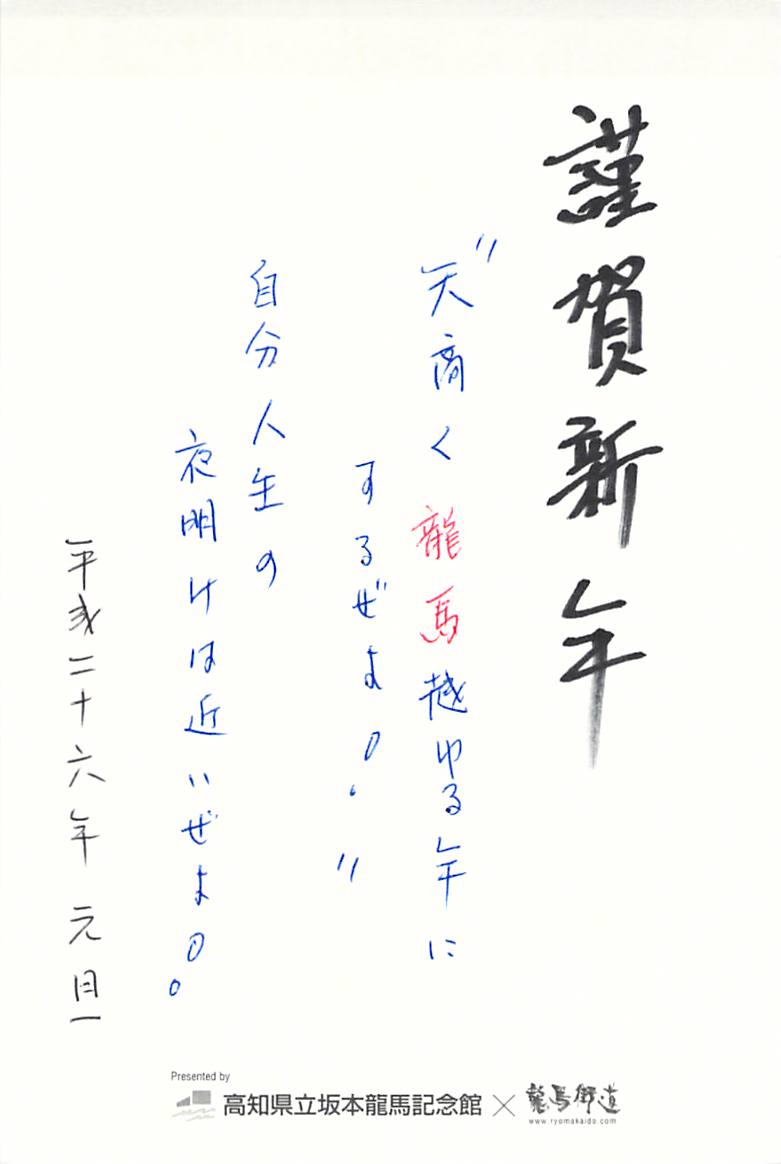 謹賀新年
"天高く龍馬越ゆる午に
するぜよ!"
自分人生の
夜明けは近いぜよ!。
平成二十六年 元旦
Presented by
高知県立坂本龍馬記念館×龍馬街道
www.ryomakaido.com